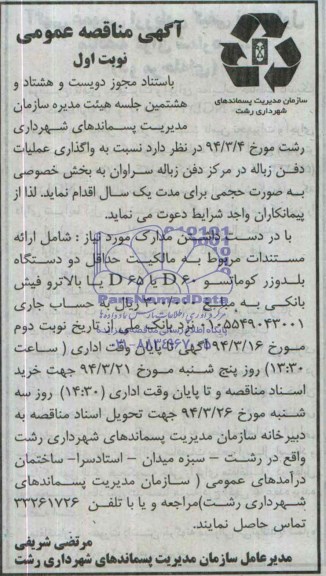 آگهی مناقصه عمومی
نوبت اول
سازمان مدیریت پسماندهای
شهرداری رشت
باستناد مجوز دویست و هشتاد و
هشتمین جلسه هیئت مدیره سازمان
مدیریت پسماندهای شهرداری
رشت مورخ ۹۴/۳/۴ در نظر دارد نسبت به واگذاری عملیات
دفن زباله در مرکز دفن زباله سراوان به بخش خصوصی
به صورت حجمی برای مدت یک سال اقدام نماید. لذا از
پیمانکاران واجد شرایط دعوت می نماید.
با در دست داشتن مدارک مورد نیاز : شامل ارائه
مستندات مربوط به مالکیت حداقل دو دستگاه
بلدوزر کوماتسو D ۶۰ یا D ۶۵ یا بالاترو فیش
بانکی به مبلغ ریال به حساب جاری
نزد بانک ملی از تاریخ نوبت دوم
مورخ ۹۴/۳/۱۶ آگهی تا پایان وقت اداری ( ساعت
۱۳:۳۰) روز پنج شنبه مورخ ۹۴/۳/۲۱ جهت خرید
اسناد مناقصه و تا پایان وقت اداری (۱۴:۳۰) روز سه
شنبه مورخ ۹۴/۳/۲۶ جهت تحویل اسناد مناقصه به
دبیرخانه سازمان مدیریت پسماندهای شهرداری رشت
واقع در رشت – سبزه میدان – استادسرا- ساختمان
درآمدهای عمومی ( سازمان مدیریت پسماندهای
شهرداری رشت)مراجعه و یا با تلفن ۳۳۲۶۱۷۲۶
تماس حاصل نمایند.
مرتضی شریفی
مدیرعامل سازمان مدیریت پسماندهای شهرداری رشت